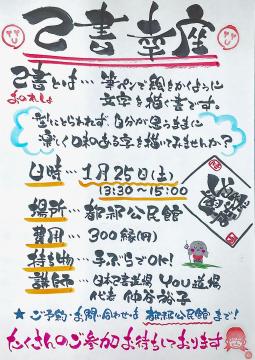 己書幸座
己書とは… 筆ペンで絵をかくように
おのれしょ
文字を描く書です。
型にとらわれず、自分が思うままに
楽しく味のある字を描いてみませんか?
日時… 1月25日(土)
13:30~15:00
場所… 都祁公民館
費用… 300縁(円)
持ち物… 手ぶらでOK!
講師… 日本己書道場 YOU道場
代表 仲谷裕子
★ ご予約・お問い合わせは 都祁公民館 まで!
たくさんのご参加お待ちしております